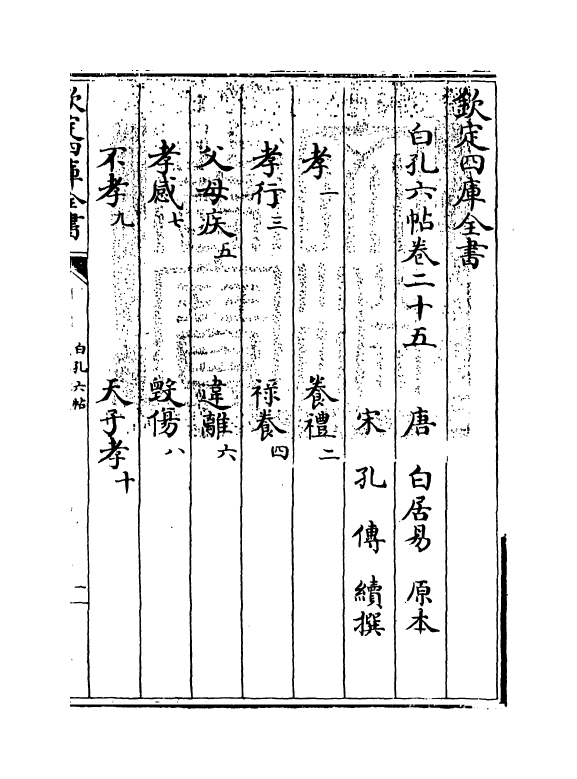 欽定四庫全書
白孔六帖卷二十五 唐 白居易 原本
宋 孔 傳 續撰
孝一 養禮二
孝行三 祿養四
父母疾五 違離六
孝感七 毀傷八
不孝九 天子孝十
欽定四庫全書 白孔六帖 一